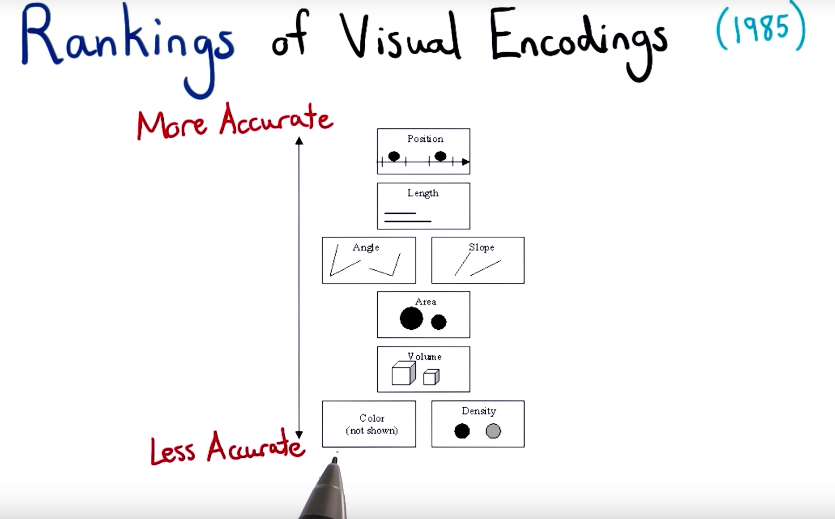 Rankings of Visual Encodings (1985)
More Accurate
Position
Length
Angle Slope
Area
Volume
Color Density
(not shown)
Less Accurate